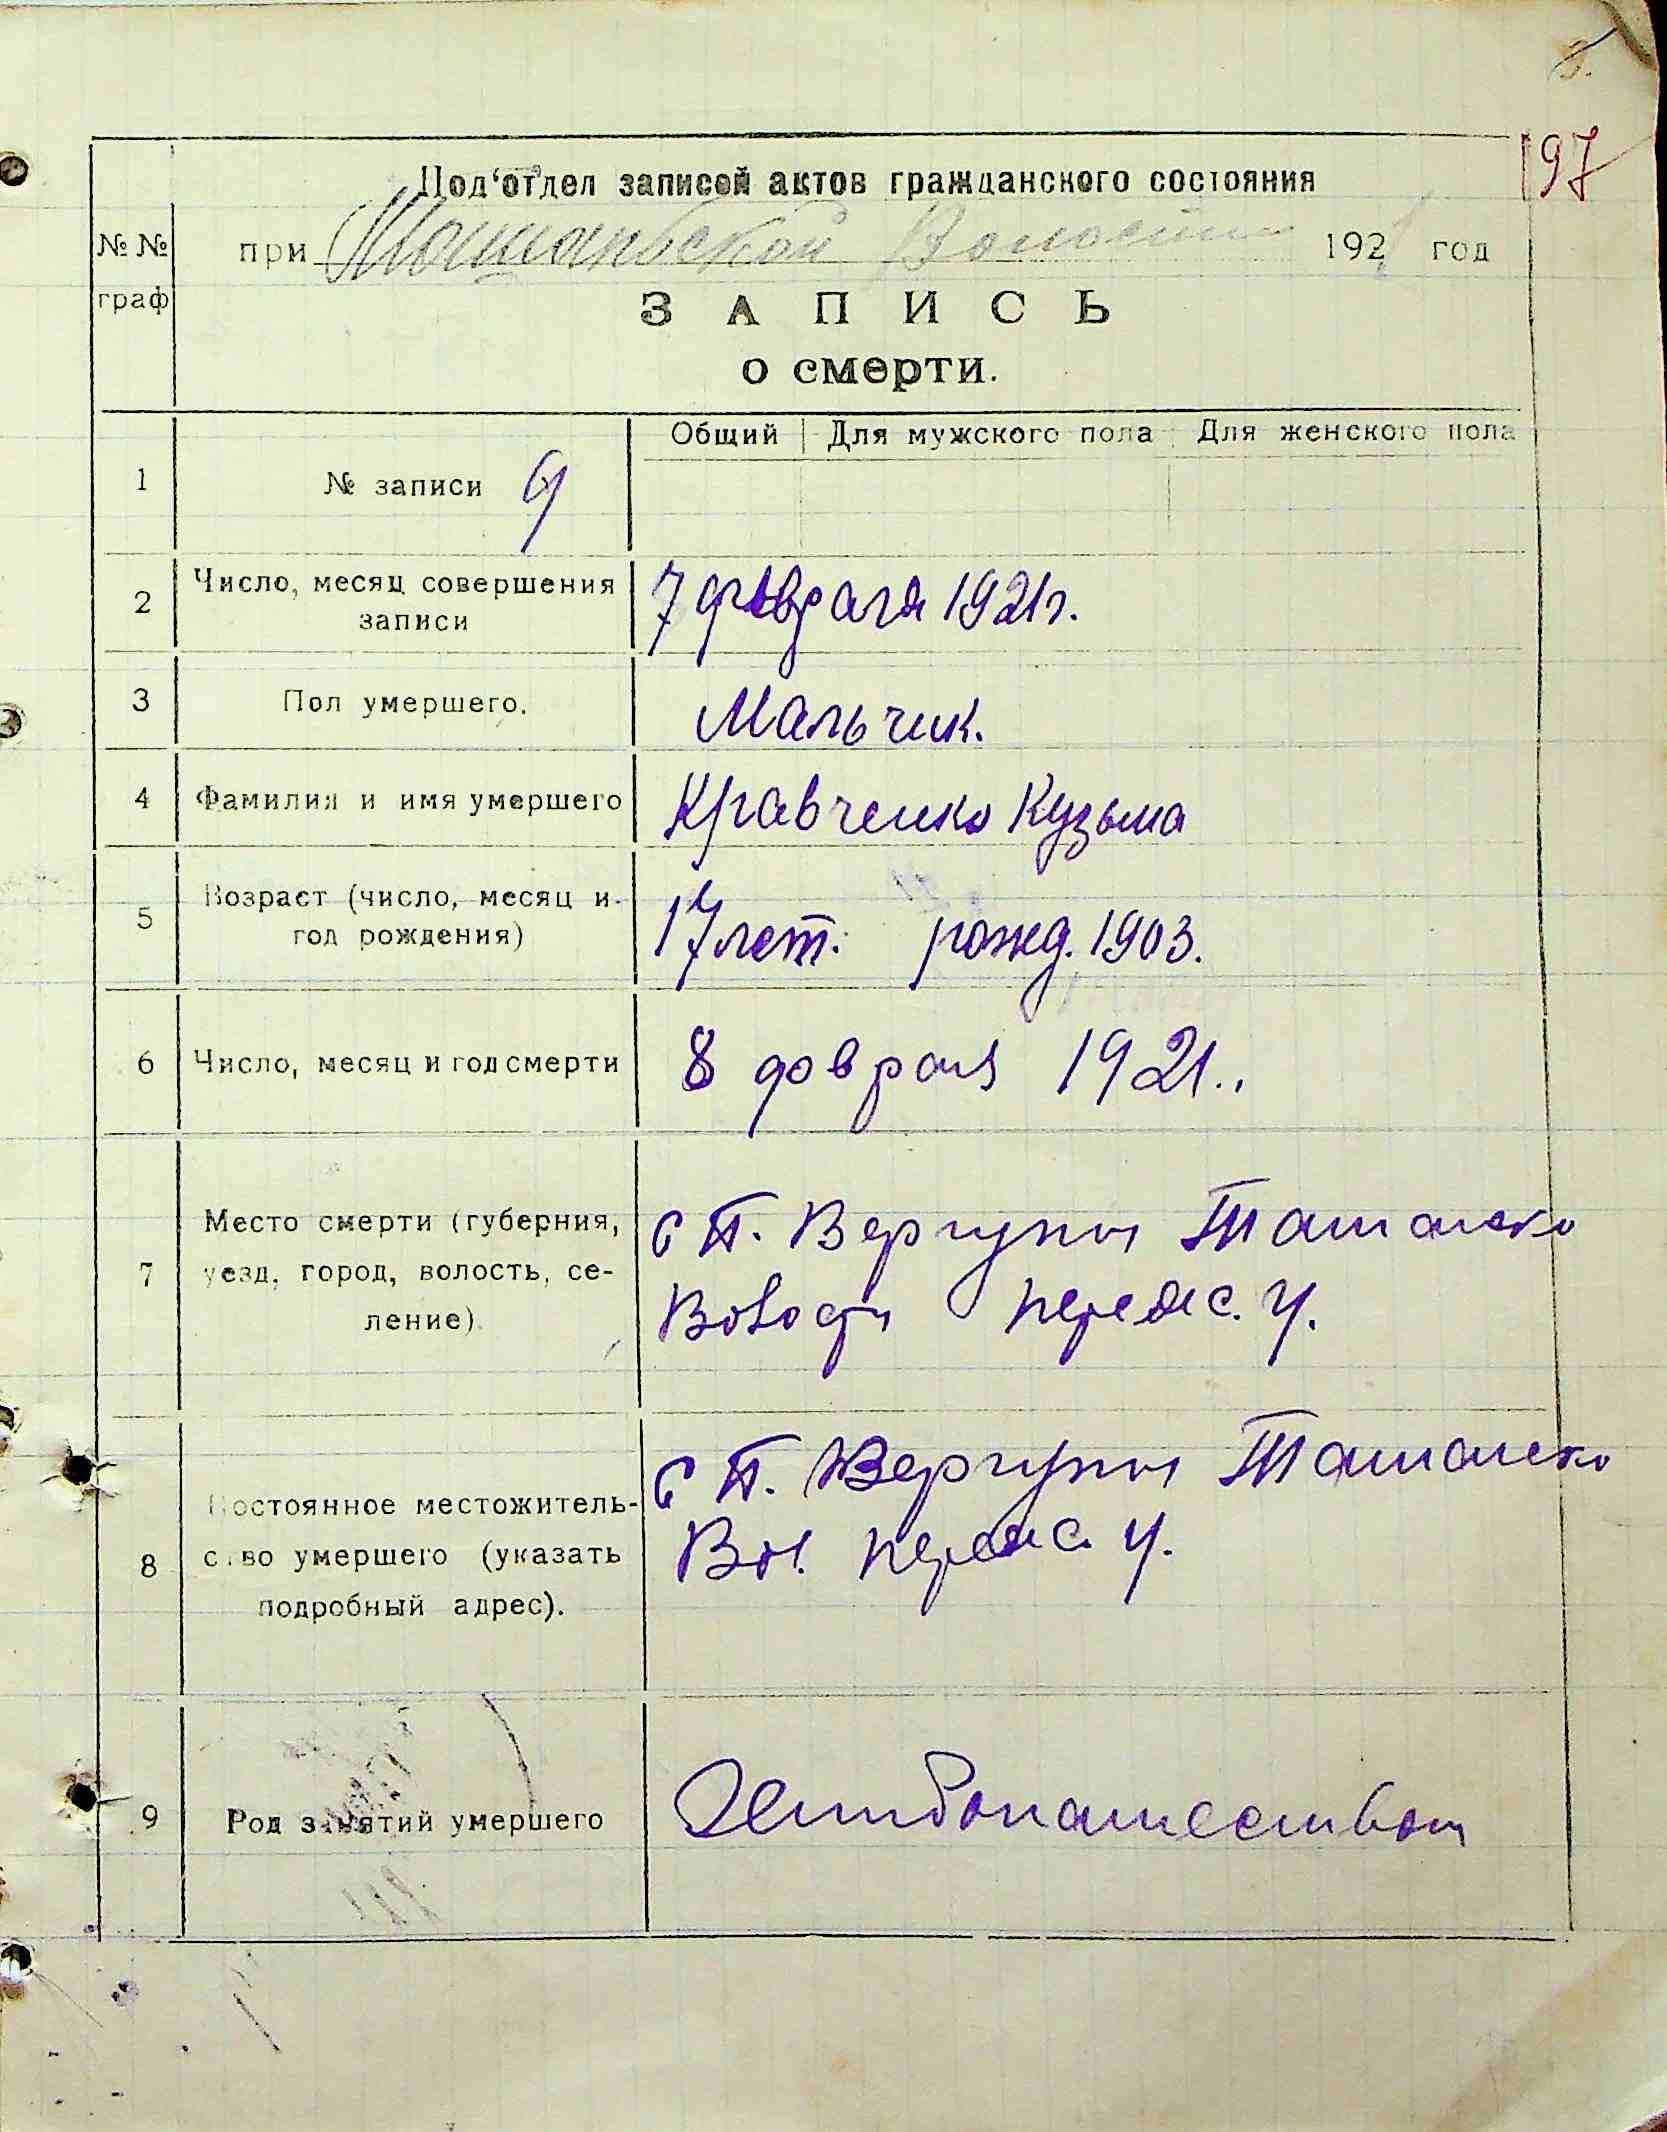 197
Под'отдел записей актов гражданского состояния
№ № граф
при Ташаньской Волости 192 год
ЗАПИСЬ
о смерти.
Общий Для мужского пола Для женского пола
1 № записи 9
2 Число, месяц совершения
записи
7 февраля 1921г.
3 Пол умершего. Мальчик.
4 Фамилия и имя умершего Кравченко Кузьма
5 Возраст (число, месяц и
год рождения)
17 лет. рожд. 1903.
6 Число, месяц и год смерти 8 довраля 1921..
7 Место смерти (губерния,
уезд, город, волость, се-
ление)
С П. Вергуны Ташанско
Волости Переяс. У.
8 Постоянное местожитель-
ство умершего (указать
подробный адрес).
С П. Вергуны Ташанско
Вол. Переяс. У.
9 Род занятий умершего